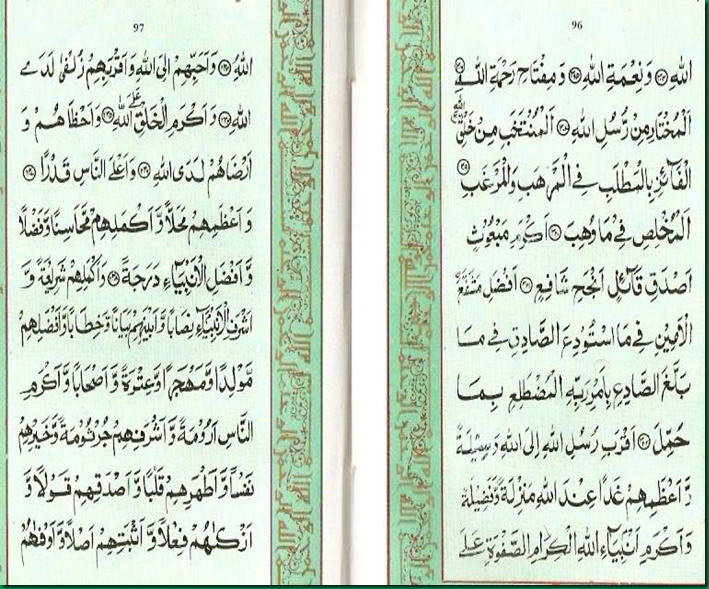 96
اللهِ وَنِعْمَةِ اللهِ وَمِفْتَاحِ رَحْمَةِ اللهِ
اَلْمُخْتَارِ مِنْ رُّسُلِ اللهِ اَلْمُنْتَخَبِ مِنْ خَلْقِ اللهِ
اَلْفَآئِزِ بِالْمَطْلَبِ فِي الْمَرْهَبِ وَالْمَرْغَبِ
اَلْمُخْلَصِ فِيْ مَا وُهِبَ اَكْرَمِ مَبْعُوْثٍ
اَصْدَقِ قَآئِلٍ اَنْجَحِ شَافِعٍ اَفْضَلِ مُشَفَّعٍ
اَلْاَمِيْنِ فِيْ مَا اسْتُوْدِعَ الصَّادِقِ فِيْ مَا
بَلَّغَ الصَّادِعِ بِاَمْرِ رَبِّهِ الْمُضْطَلِعِ بِمَا
حُمِّلَ اَقْرَبِ رُسُلِ اللهِ اِلَى اللهِ وَسِيْلَةً
وَّاَعْظَمِهِمْ غَدًا عِنْدَ اللهِ مَنْزِلَةً وَّفَضِيْلَةً
وَاَكْرَمِ اَنْبِيَآءِ اللهِ الْكِرَامِ الصَّفْوَةِ عَلَى
97
اللهِ وَاَحَبِّهِمْ اِلَى اللهِ وَاَقْرَبِهِمْ زُلْفٰى لَدَى
اللهِ وَاَكْرَمِ الْخَلْقِ عَلَى اللهِ وَاَحْظَاهُمْ وَ
اَرْضَاهُمْ لَدَى اللهِ وَاَعْلَى النَّاسِ قَدْرًا
وَاَعْظَمِهِمْ مَحَلًّا وَّاَكْمَلِهِمْ مَحَاسِنًا وَّفَضْلًا
وَّاَفْضَلِ الْاَنْبِيَآءِ دَرَجَةً وَاَكْمَلِهِمْ شَرِيْعَةً وَّ
اَشْرَفِ الْاَنْبِيَآءِ نِصَابًا وَّاَبْيَنِهِمْ بَيَانًا وَّخِطَابًا وَّاَفْضَلِهِمْ
مَّوْلِدًا وَّمُهَاجَرًا وَّعِتْرَةً وَّاَصْحَابًا وَّاَكْرَمِ
النَّاسِ اَرُوْمَةً وَّاَشْرَفِهِمْ جُرْثُوْمَةً وَّخَيْرِهِمْ
نَفْسًا وَّاَطْهَرِهِمْ قَلْبًا وَّاَصْدَقِهِمْ قَوْلًا وَّ
اَزْكَاهُمْ فِعْلًا وَّاَثْبَتِهِمْ اَصْلًا وَّاَوْفٰهُمْ